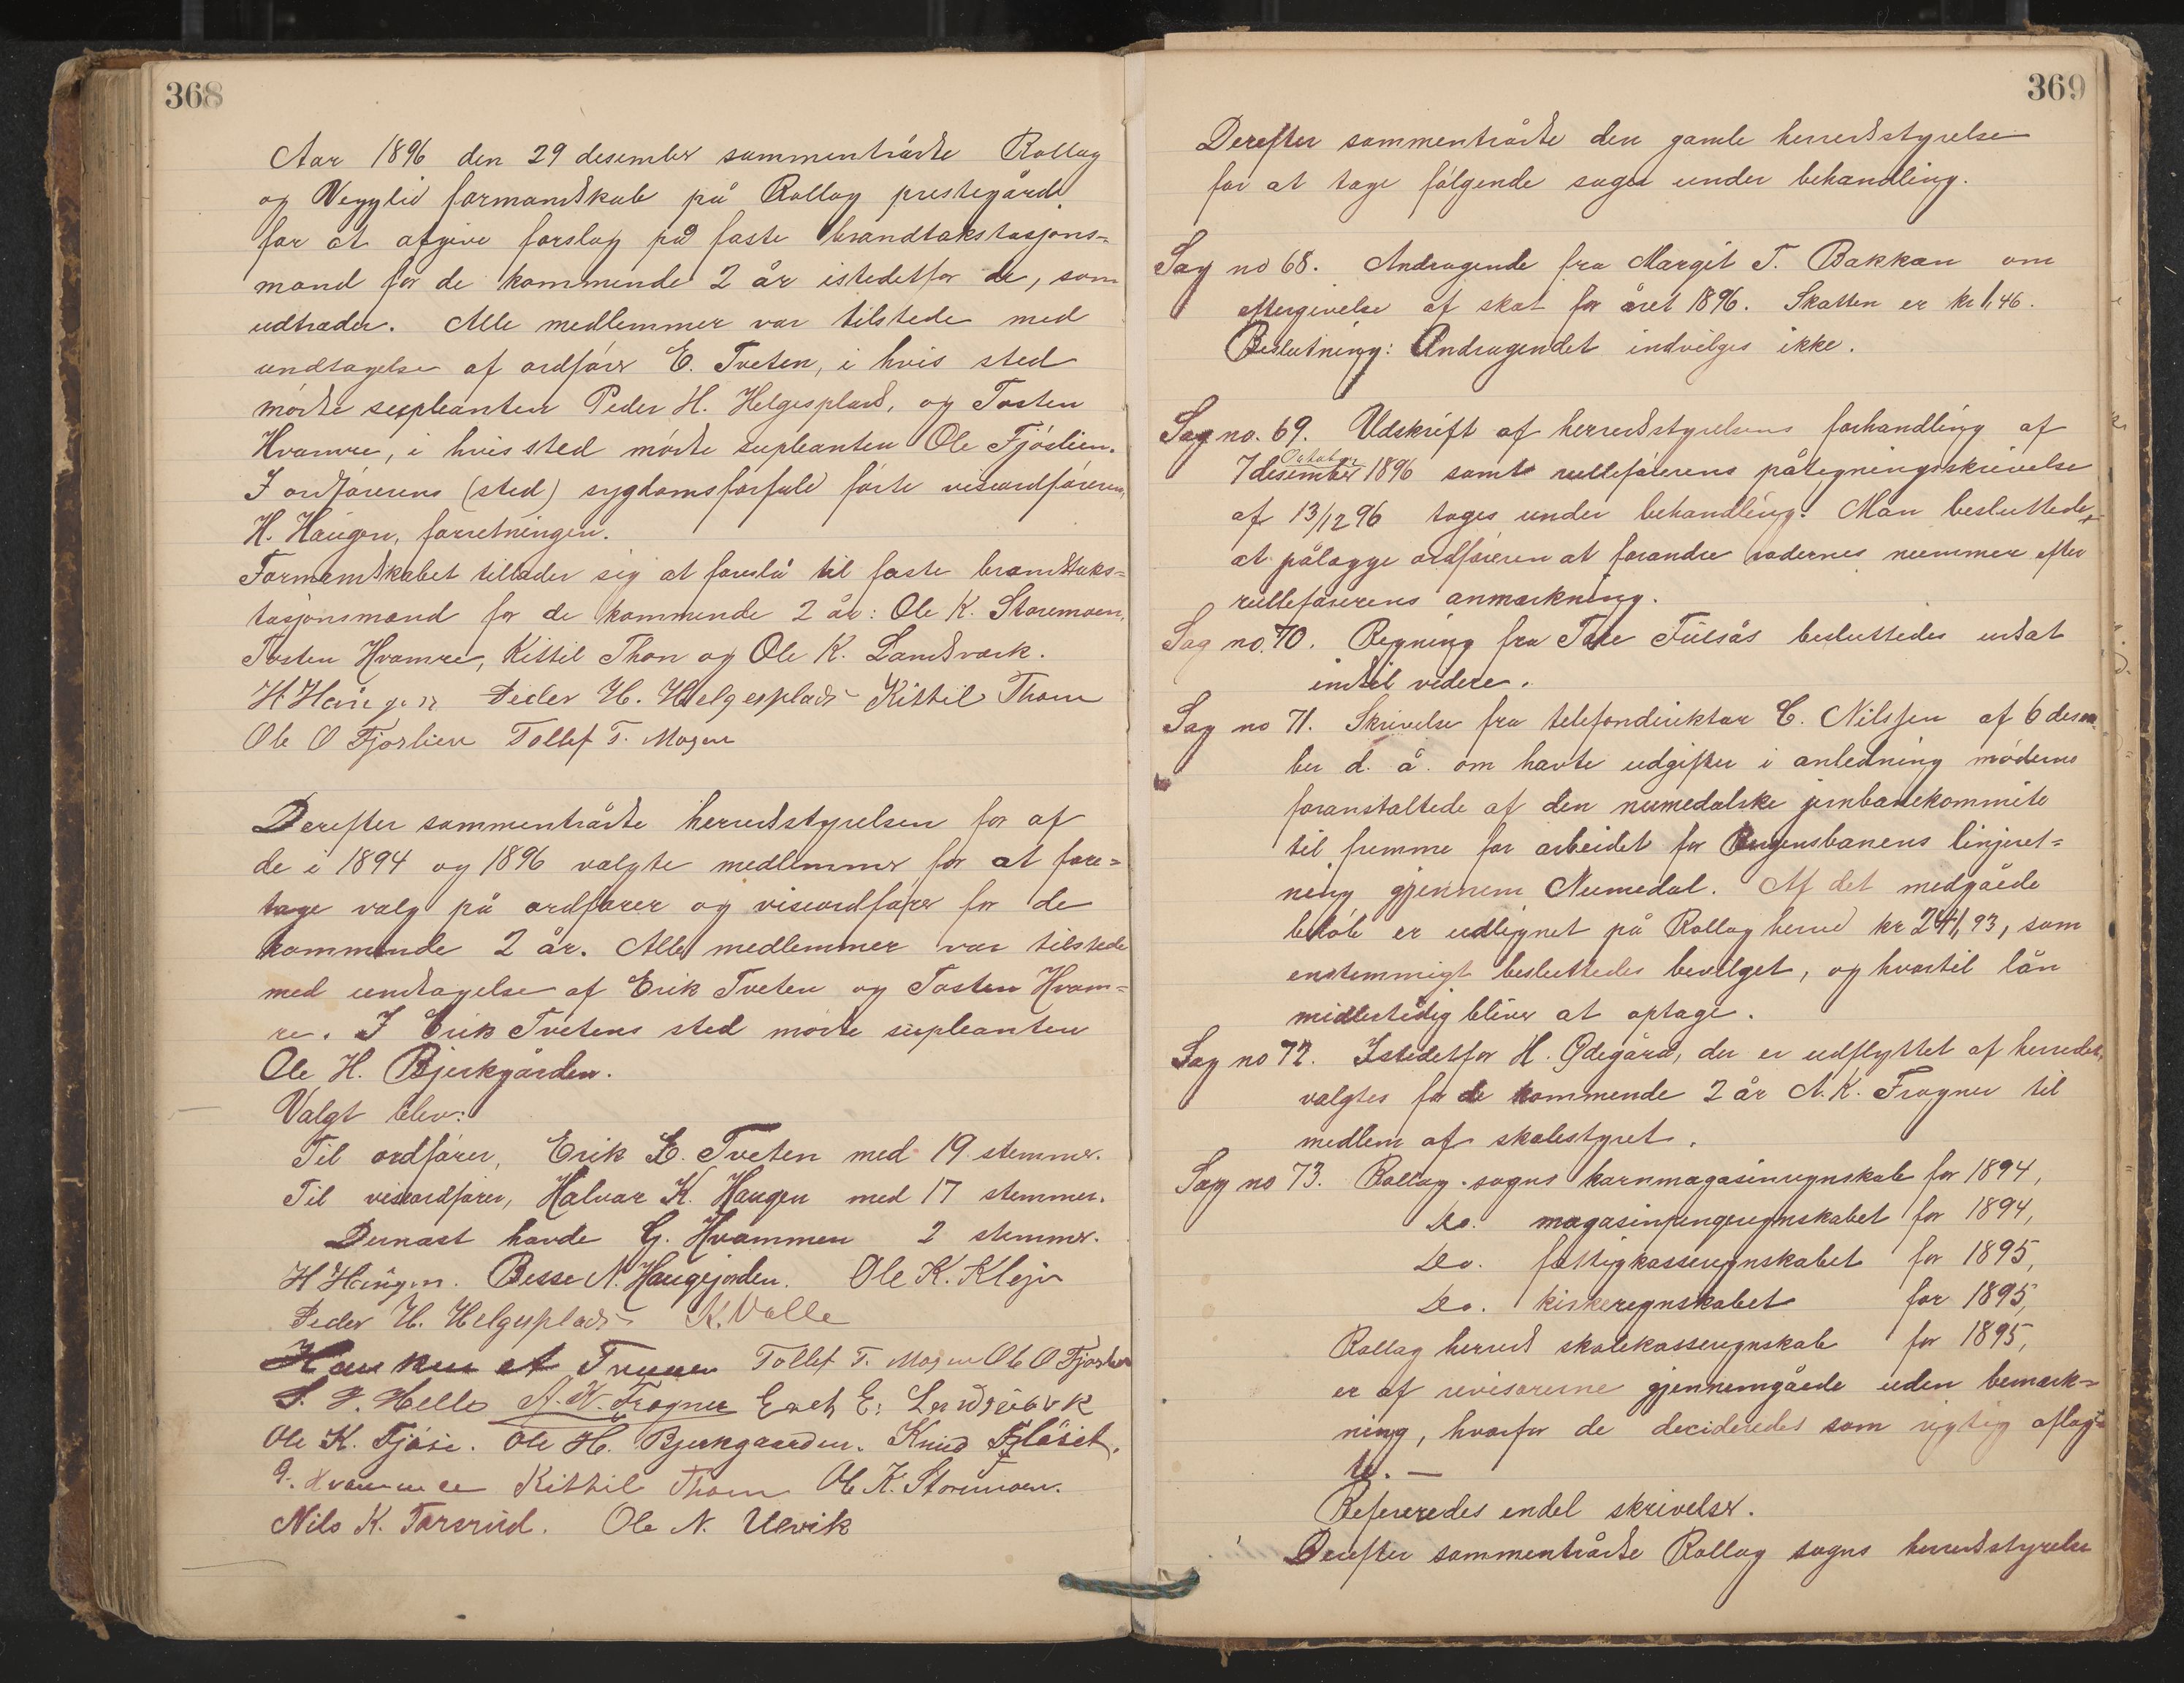 368
Aar 1896 den 29 desember sammentrådte Rollag
og Vegglid formandskab på Rollag prestegård
for at afgive forslag på faste brandtakstasjons-
mænd for de kommende 2 år istedetfor de, som
udtræder. Alle medlemmer var tilstede med
undtagelse af ordfører E. Tveten, i hvis sted
mødte supleanten Peder H. Helgesplads, og Tosten
Hvamre, i hvis sted mødte supleanten Ole Fjøslien.
I ordførerens (sted) sygdomsforfald førte viseordføreren,
H. Haugen, forretningen.
Formandskabet tillader sig at foreslå til faste brandtaks-
tasjonsmænd for de kommende 2 år: Ole K. Storemoen,
Tosten Hvamre, Kittil Thon og Ole K. Landsværk.
H Haugen Peder H. Helgesplads Kittil Thon
Ole O Fjøslien Tollef T. Mogen
Derefter sammentrådte herredsstyrelsen for af
de i 1894 og 1896 valgte medlemmer for at fore-
tage valg på ordfører og viseordfører for de
kommende 2 år. Alle medlemmer var tilstede
med undtagelse af Erik Tveten og Tosten Hvam-
re. I Erik Tvetens sted mødte supleanten
Ole H. Bjerkgården.
Valgt blev:
Til ordfører, Erik E. Tveten med 19 stemmer.
Til viseordfører, Halvar K. Haugen med 17 stemmer.
Dernæst havde G. Hvammen 2 stemmer.
H Haugen. Besse N. Haugejorden. Ole K. Kleiv
Peder H. Helgesplads K. Valle
Tollef T. Mogen Ole O Fjøslien
Helle A. K. Fragner E: Landsværk
Ole K. Fjøse. Ole H. Bjerkgaarden. Knud Fjøset.
G. Hvammen Kittil Thon Ole K. Storemoen.
Nils K. Tarsrud. Ole N. Ulvik
369
Derefter sammentrådte den gamle herredsstyrelse
for at tage følgende sager under behandling.
Sag no 68. Andragende fra Margit T. Bakkan om
eftergivelse af skat for året 1896. Skatten er kr 1,46.
Beslutning: Andragendet indvilges ikke.
Sag no. 69. Udskrift af herredsstyrelsens forhandling af
Oktober
7 desember 1896 samt rulleførerens påtegningsskrivelse
af 13/12 96 tages under behandling. Man besluttede
at pålægge ordføreren at forandre rodernes nummer efter
rulleførerens anmærkning.
Sag no. 70. Regning fra Tore Fulsås besluttedes udsat
indtil videre.
Sag no 71. Skrivelse fra telefondirektør C. Nilssen af 6 desem
ber d. å. om havte udgifter i anledning møderne
foranstaltede af den numedalske jernbanekommite
til fremme for arbeidet for Bergensbanens linjeret-
ning gjennem Numedal. Af det medgåede
beløb er udlignet på Rollag herred kr 241,93, som
enstemmigt besluttedes bevilget, og hvortil lån
midlertidig bliver at optage.
Sag no 72. Istedetfor H. Ødegård, der er udflyttet af herredet,
valgtes for de kommende 2 år A. K. Fragner til
medlem af skolestyret.
Sag no 73. Rollag sogns kornmagasinregnskab for 1894,
Do. magasinpengeregnskabet for 1894,
Do. fattigkasseregnskabet for 1895,
Do. kirkeregnskabet for 1895,
Rollag herred skolekasseregnskab for 1895,
er af revisorerne gjennemgåede uden bemærk-
ning, hvorfor de decideredes som rigtig aflag-
te. —
Refereredes endel skrivelser.
Derefter sammentrådte Rollag sogns herredsstyrelse